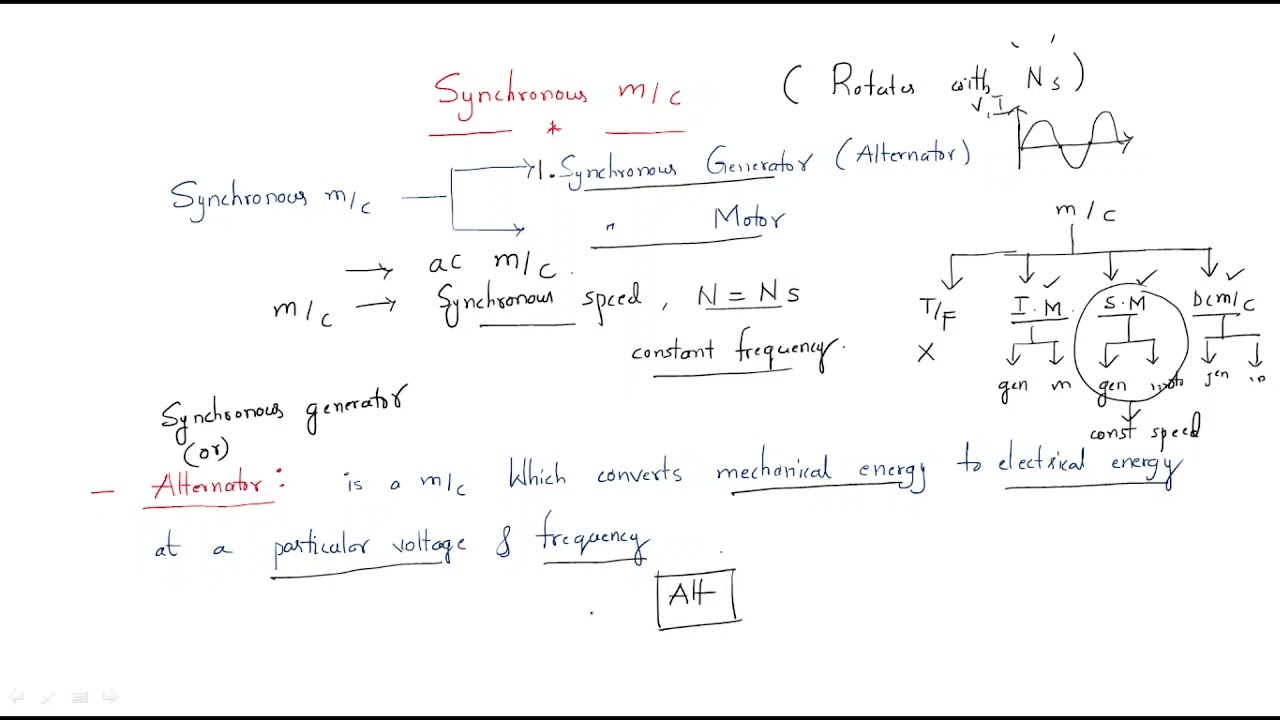 Synchronous m/c ( Rotates with "Ns )
V, I
1. Synchronous Generator (Alternator)
Synchronous m/c
" Motor
m/c
→ ac m/c.
m/c → Synchronous speed, N = Ns
constant frequency.
T/F I.M. S.M DCm/C
X gen m gen mot gen m
const speed
Synchronous generator
(or)
- Alternator : is a m/c Which converts mechanical energy to electrical energy
at a particular voltage & frequency
Alt